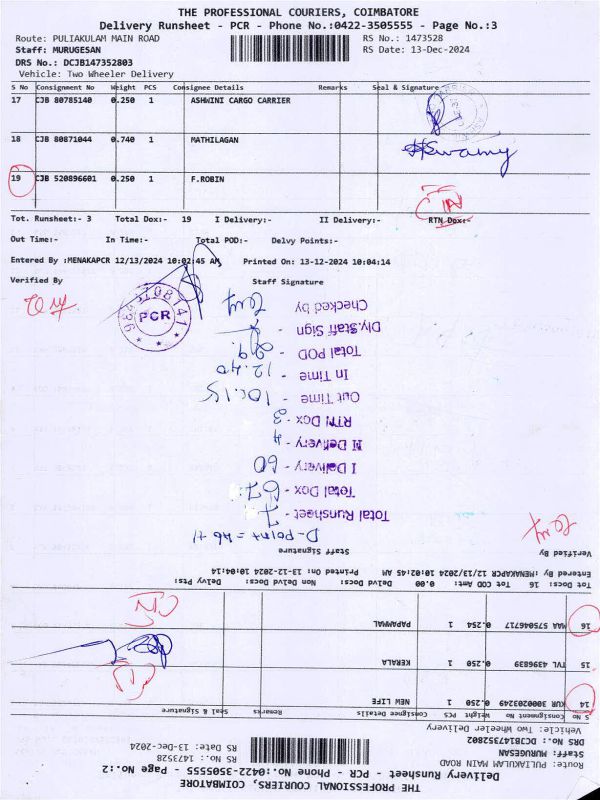 THE PROFESSIONAL COURIERS, COIMBATORE
Delivery Runsheet - PCR - Phone No.:0422-3505555 - Page No.:3
Route: PULIAKULAM MAIN ROAD RS No.: 1473528
Staff: MURUGESAN RS Date: 13-Dec-2024
DRS No.: DCJB147352803
Vehicle: Two Wheeler Delivery
S No Consignment No Weight PCS Consignee Details Remarks Seal & Signature
17 CJB 80785140 0.250 1 ASHWINI CARGO CARRIER
18 CJB 80871044 0.740 1 MATHILAGAN
19 CJB 520896601 0.250 1 F.ROBIN
Tot. Runsheet:- 3 Total Dox:- 19 I Delivery:- II Delivery:- RTN Dox:-
Out Time:- In Time:- Total POD:- Delvy Points:-
Entered By :MENAKAPCR 12/13/2024 10:02:45 AM Printed On: 13-12-2024 10:04:14
Verified By Staff Signature
PCR
Checked by
Dly.Staff Sign -
Total POD - 29.
In Time - 12.40
Out Time - 10.15
RTN Dox - 3
II Delivery - 4
I Delivery - 60
Total Dox - 67
Total Runsheet - 7
Verified By Staff Signature
Entered By :MENAKAPCR 12/13/2024 10:02:45 AM Printed On: 13-12-2024 10:04:10
Tot Docs: 16 Tot COD Amt: 0.00 Delvd Docs: Non Delvd Docs: Delvy Pts:
16 MAA 575046717 0.254 1 PAPAMMAL
15 TVL 4396839 0.250 1 KERALA
14 KUR 3000203249 0.250 1 NEW LIFE
S No Consignment No Weight PCS Consignee Details Remarks Seal & Signature
Vehicle: Two Wheeler Delivery
DRS No.: DCJB147352802
Staff: MURUGESAN RS Date: 13-Dec-2024
Route: PULIAKULAM MAIN ROAD RS No.: 1473528
Delivery Runsheet - PCR - Phone No.:0422-3505555 - Page No.:2
THE PROFESSIONAL COURIERS, COIMBATORE